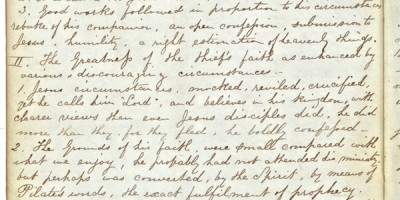 3. Good works followed in proportion to his circumstances
rebuke of his companion, an open confession, submission to
Jesus, humility, a right estimation of heavenly things.
II. The Greatness of the Thief's faith as enhanced by
various discouraging circumstances.
1. Jesus circumstances, mocked, reviled, crucified,
yet he calls him "Lord", and believes in his kingdom, with
clearer views then even Jesus disciples did, he did
more than they, for they fled, he boldly confessed.
2. The Grounds of his faith, were small compared with
what we enjoy, he probably had not attended his ministry
but perhaps was converted, by the Spirit, by means of
Pilates words, the exact fulfilment of prophecy.